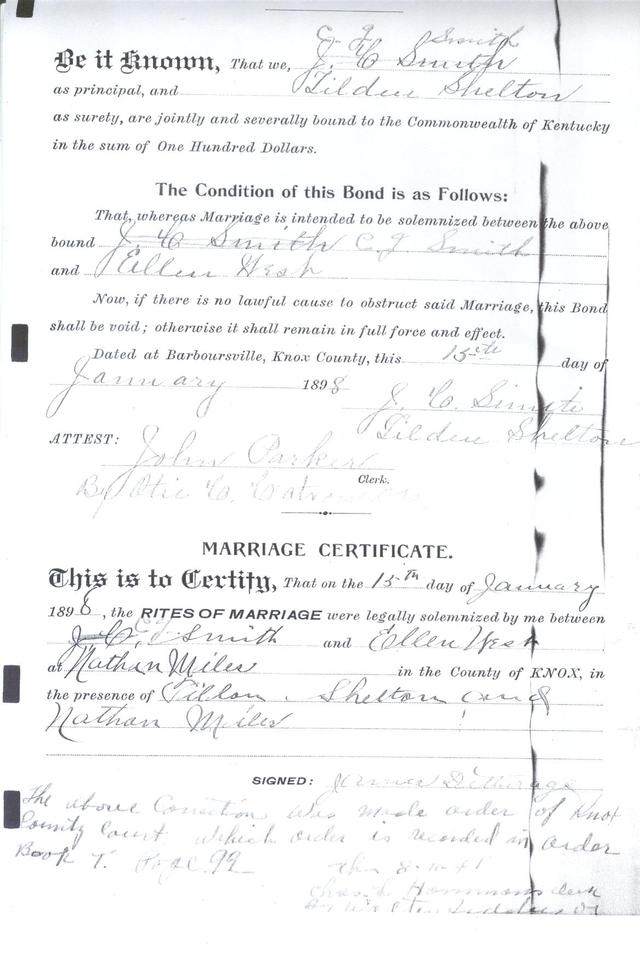 C. J. Smith
Be it Known, That we, J. C Smith
as principal, and Tilden Shelton
as surety, are jointly and severally bound to the Commonwealth of Kentucky
in the sum of One Hundred Dollars.
The Condition of this Bond is as Follows:
That, whereas Marriage is intended to be solemnized between the above
bound J. C Smith C. J Smith
and Ellen West
Now, if there is no lawful cause to obstruct said Marriage, this Bond
shall be void; otherwise it shall remain in full force and effect.
Dated at Barboursville, Knox County, this 15th day of
January 1898
J. C. Smith
Tilden Shelton
ATTEST: John Parker
Clerk.
By Otie C.
MARRIAGE CERTIFICATE.
This is to Certify, That on the 15th day of January
1898, the RITES OF MARRIAGE were legally solemnized by me between
J. C. Smith and Ellen West
at Nathan Miles in the County of KNOX, in
the presence of Tillon. Shelton and
Nathan Miles
SIGNED: James
The above Correction was made order of Knox
County Court which order is recorded in order
Book T. Page 99
This 8-11-41
Chas. L. Hammons Clerk
By